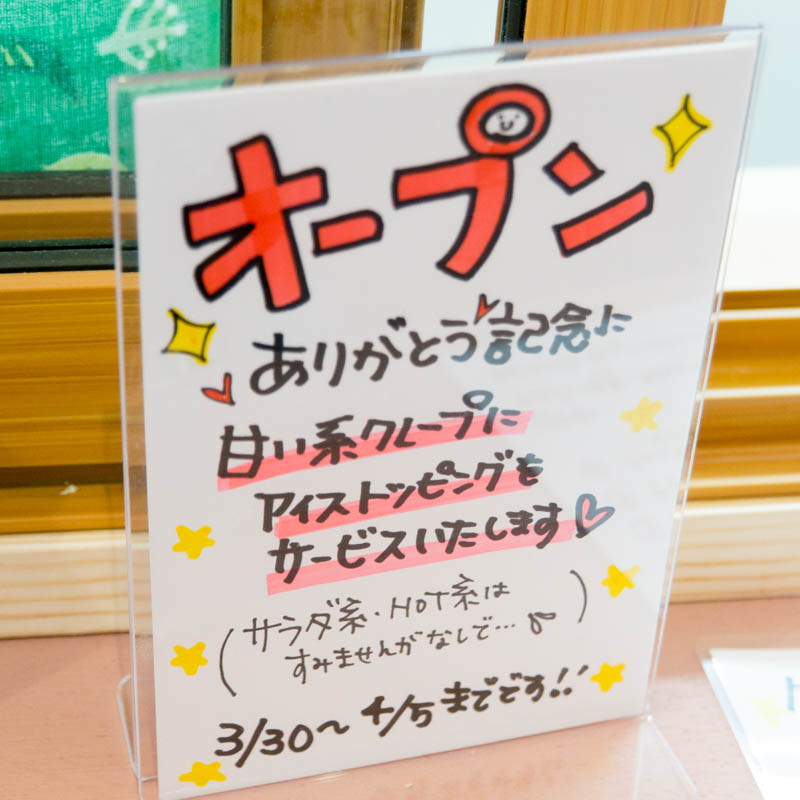 オープン
ありがとう記念に
甘い系クレープに
アイストッピングを
サービスいたします
(サラダ系・HOT系は
すみませんがなしで…)
3/30〜4/5までです!!